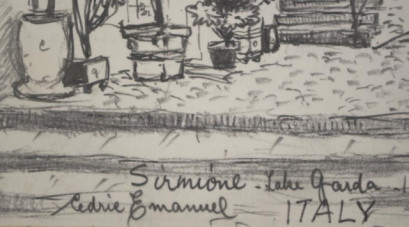 Sirmione - Lake Garda -
Cedric Emanuel ITALY